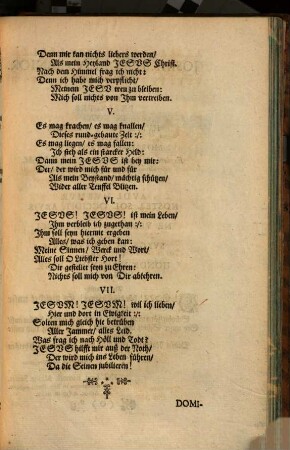 Denn mir kan nichts liebers werden/
Als mein Heyland JESVS Christ.
Nach dem Himmel frag ich nicht:
Denn ich habe mich verpflicht/
Meinem JESV treu zu bleiben:
Mich soll nichts von Ihm vertreiben.
V.
Es mag krachen/ es mag knallen/
Dieses rund-gebaute Zelt :/:
Es mag liegen/ es mag fallen:
Ich steh als ein starcker Held:
Dann mein JESVS ist bey mir:
Der/ der wird mich für und für
Als mein Beystand/ mächtig schützen/
Wider aller Teuffel Blitzen.
VI.
JESVS! JESVS! ist mein Leben/
Ihm verbleib ich zugethan :/:
Ihm soll seyn hiermit ergeben
Alles/ was ich geben kan:
Meine Sinnen/ Werck und Wort/
Alles soll O Liebster Hort!
Dir gestellet seyn zu Ehren:
Nichts soll mich von Dir abkehren.
VII.
JESVM! JESVM! wil ich lieben/
Hier und dort in Ewigkeit :/:
Solten mich gleich hie betrüben
Aller Jammer/ alles Leid.
Was frag ich nach Höll und Todt?
JESVS hilfft mir auß der Noth/
Der wird mich ins Leben führen/
Da die Seinen jubiliren!
DOMI-